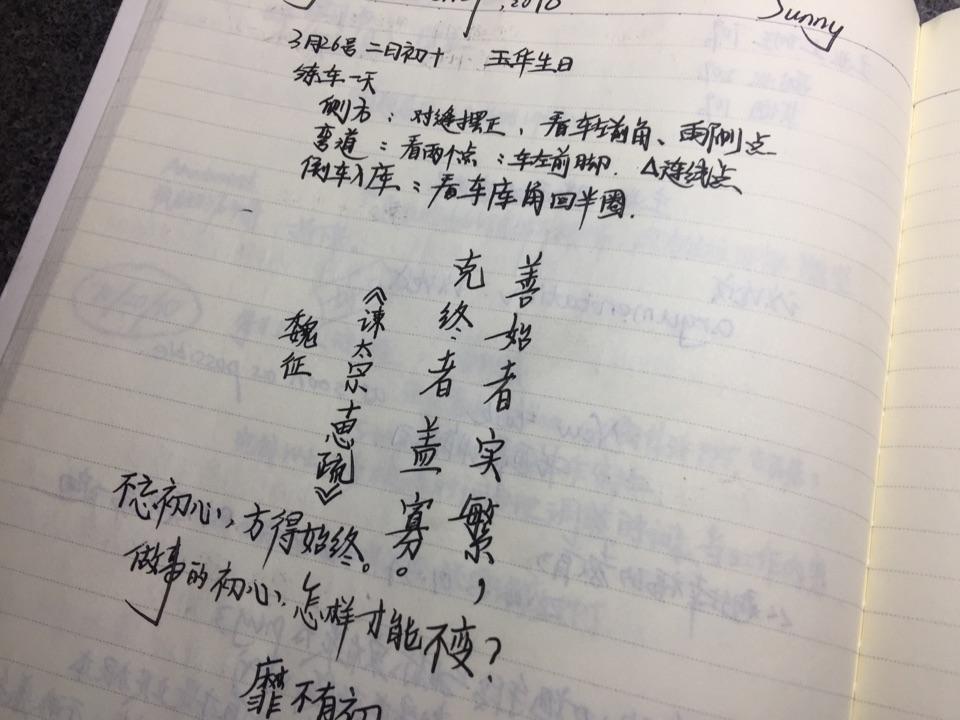 Sunny
3月26号 二月初十 玉华生日
练车一天
侧方：对缝摆正、看车左前角、两侧点
弯道：看两个点：车左前脚．△连线点
倒车入库：看车库角回半圈．
善始者实繁，
克终者盖寡。
《谏太宗十思疏》
魏征
不忘初心，方得始终。
做事的初心，怎样才能不变？
靡不有初